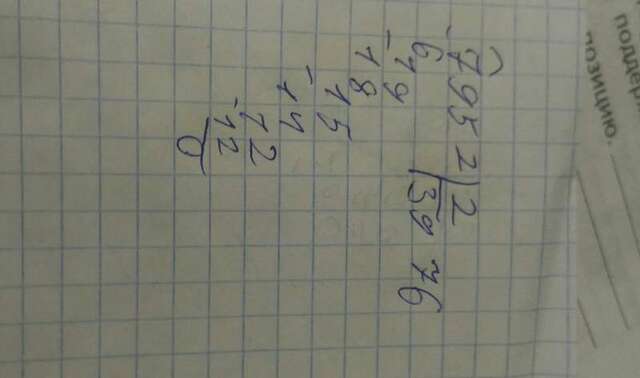 -7952|2
6 3976
-19
18
15
-14
12
-12
0
поддер
позицию.